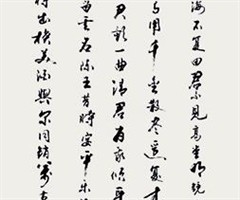 海不復回君不見高堂明鏡
用千金散盡還復來
君歌一曲請君為我傾耳
名陳王昔時宴平樂
將出換美酒與爾同銷萬古